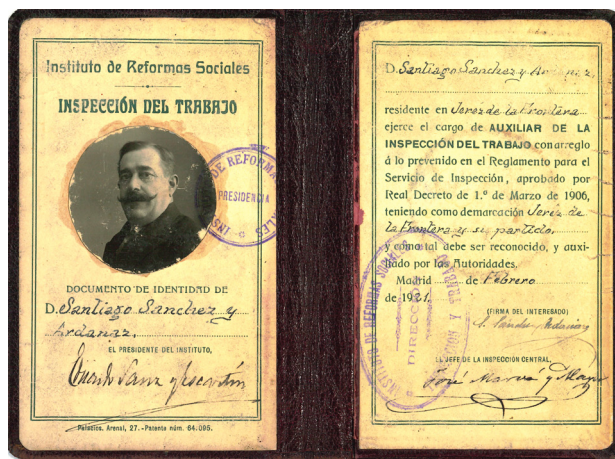 Instituto de Reformas Sociales
INSPECCIÓN DEL TRABAJO
INSTITUTO DE REFORMAS SOCIALES
PRESIDENCIA
DOCUMENTO DE IDENTIDAD DE
D. Santiago Sanchez y
Ardanaz.
EL PRESIDENTE DEL INSTITUTO,
Eduardo Sanz y Escartín
Palacios. Arenal, 27.-Patente núm. 64.095.
D. Santiago Sanchez y
residente en Jerez de la Frontera
ejerce el cargo de AUXILIAR DE LA
INSPECCIÓN DEL TRABAJO con arreglo
á lo prevenido en el Reglamento para el
Servicio de Inspección, aprobado por
Real Decreto de 1.º de Marzo de 1906,
teniendo como demarcación Jerez de
la Frontera y su partido.
y como tal debe ser reconocido, y auxi-
liado por las Autoridades.
Madrid de Febrero
de 1921.
(FIRMA DEL INTERESADO)
S. Sanchez Ardanaz
EL JEFE DE LA INSPECCIÓN CENTRAL,
José Marvá y Mayer
INSTITUTO DE REFORMAS SOCIALES
DIRECCION
TRABAJO